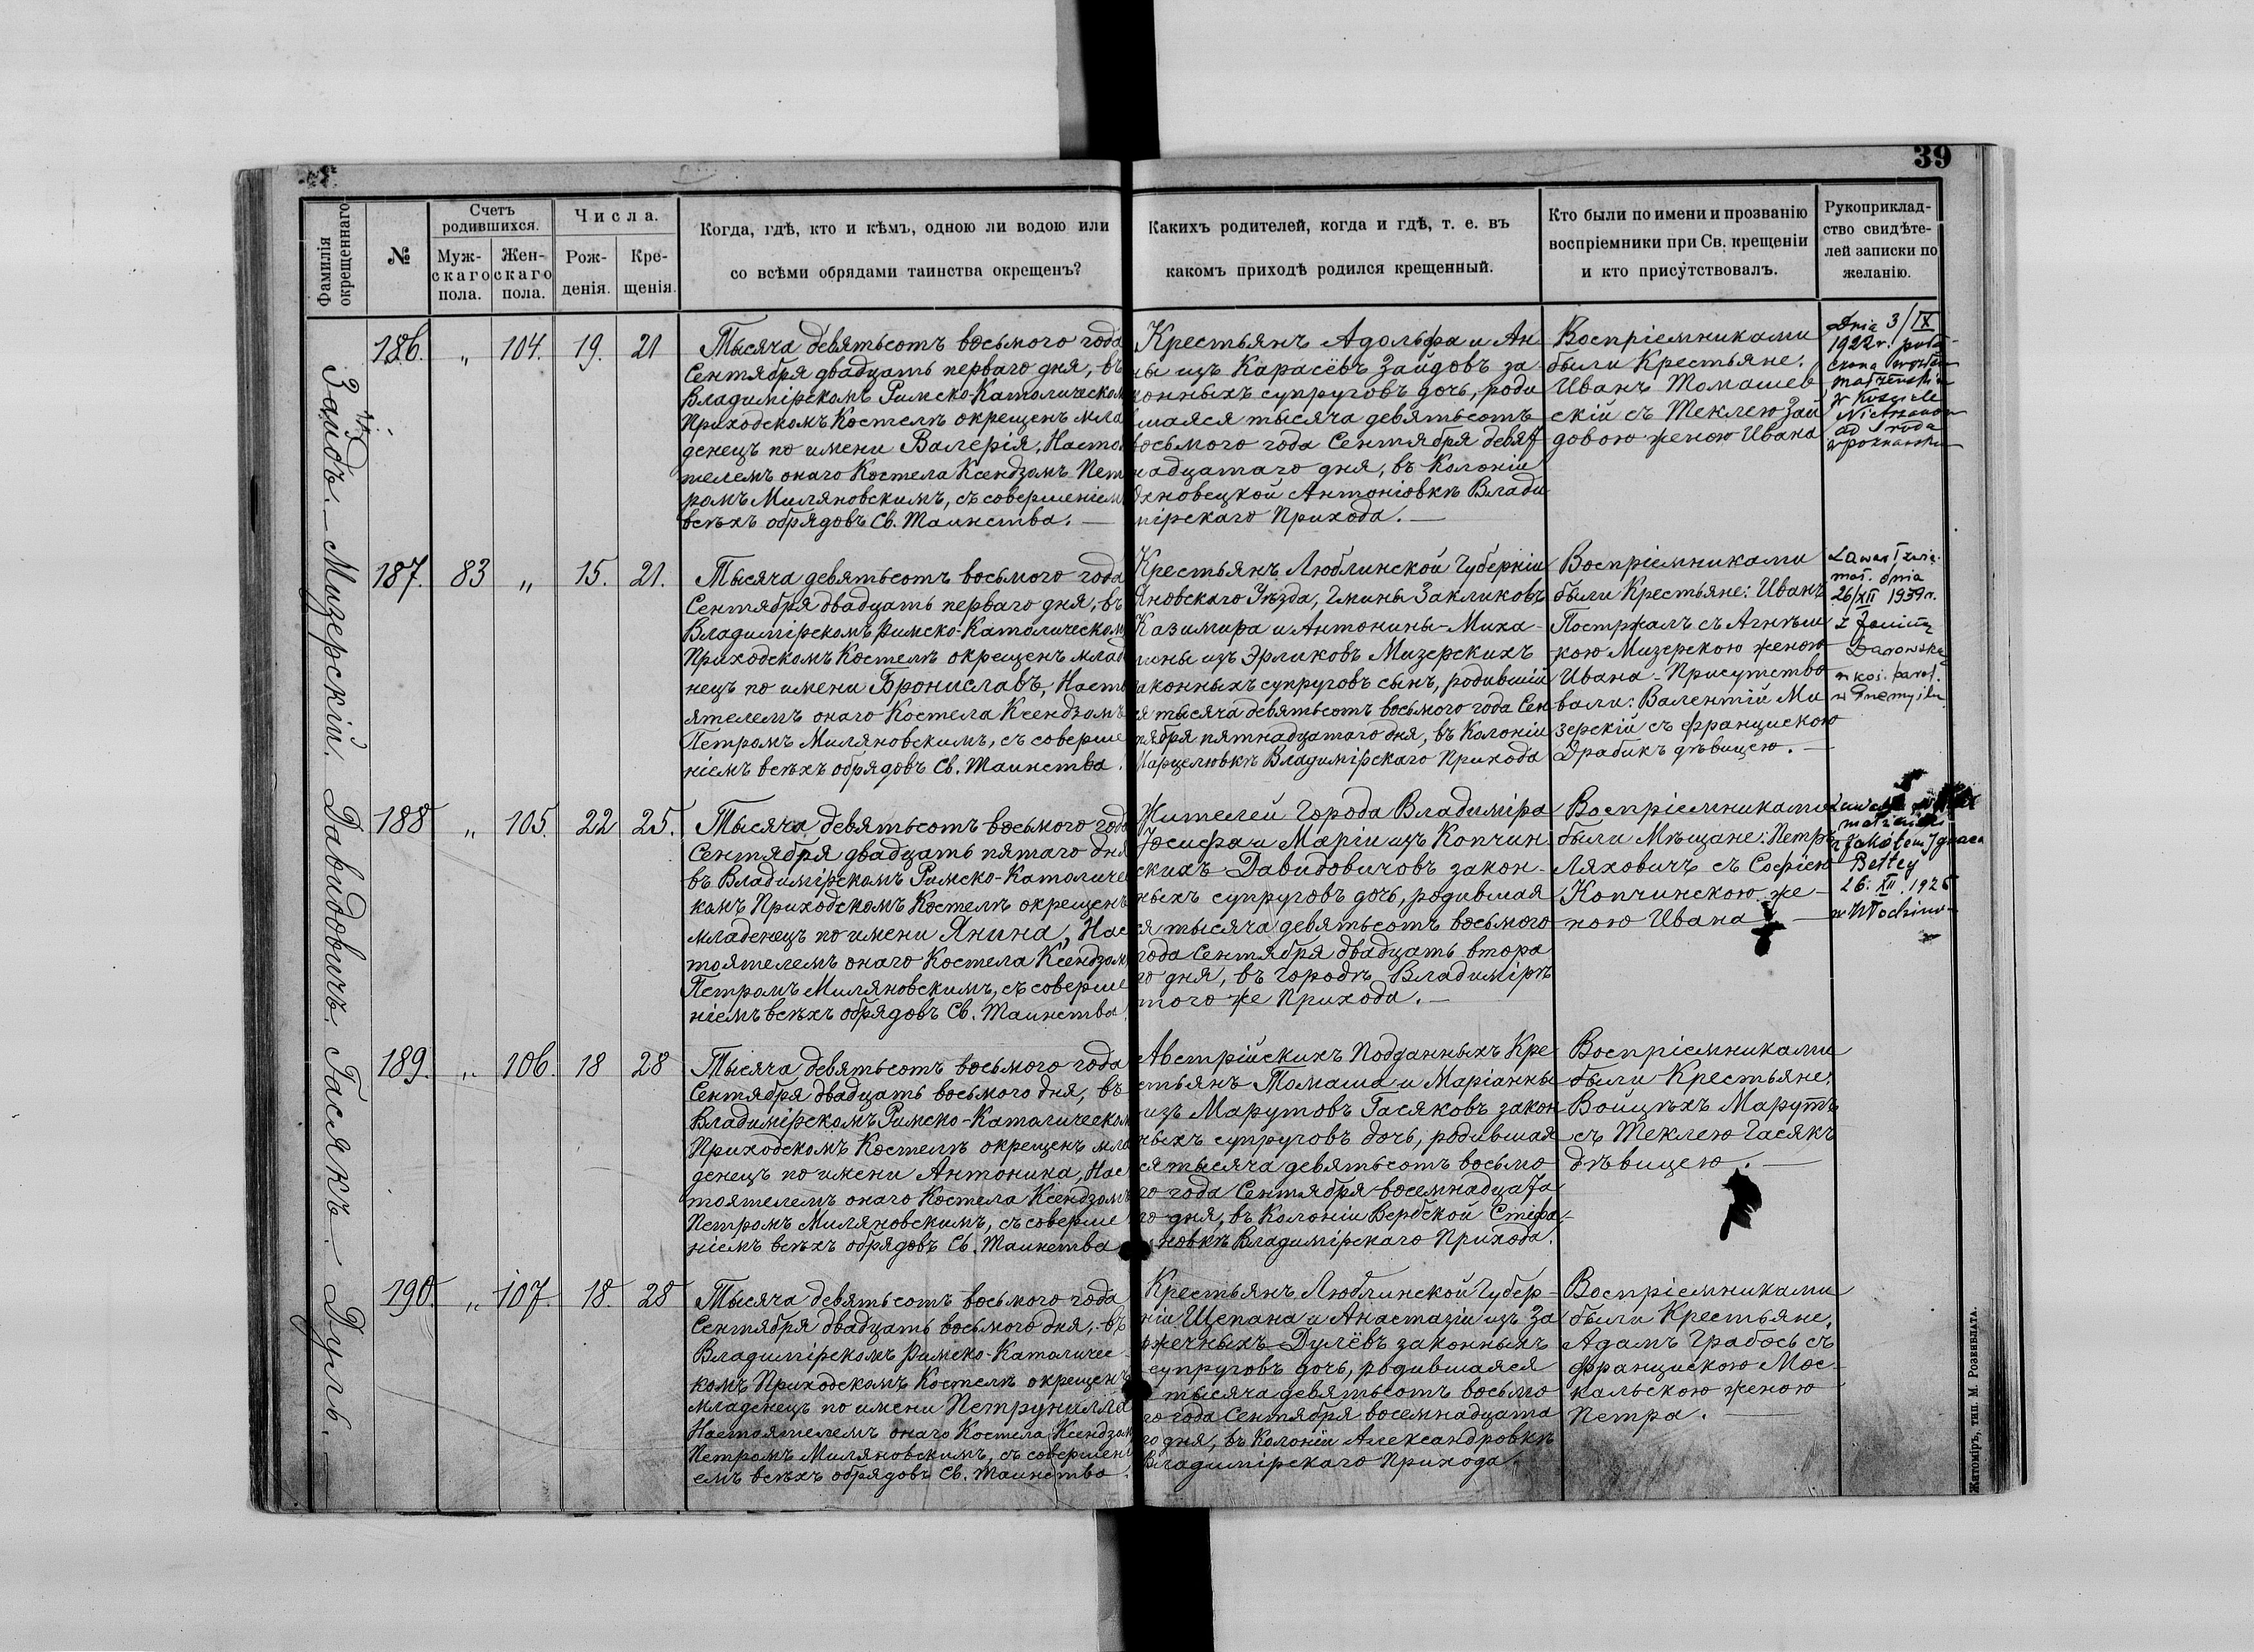 39
Фамилія
окрещеннаго
№
Счетъ
родившихся.
Муж-
скаго
пола.
Жен-
скаго
пола.
Числа.
Рож-
денія.
Кре-
щенія.
Когда, гдѣ, кто и кѣмъ, одною ли водою или
со всѣми обрядами таинства окрещенъ?
Какихъ родителей, когда и гдѣ, т. е. въ
какомъ приходѣ родился крещенный.
Кто были по имени и прозванію
воспріемники при Св. крещеніи
и кто присутствовалъ.
Рукоприклад-
ство свидѣте-
лей записки по
желанію.
Зайдъ.
186. „ 104. 19. 21
Тысяча девятьсотъ восьмого года
Сентября двадцать перваго дня, въ
Владимірскомъ Римско-Католическом
Приходскомъ Костелѣ окрещенъ мла
денецъ по имени Валерія, Насто
телемъ онаго Костела Ксендзомъ Пет
ромъ Миляновскимъ, съ совершеніем
всѣхъ обрядовъ Св. Таинства. —
Крестьянъ Адольфа и Ан
ны изъ Карасёвъ Зайдовъ за
конныхъ супруговъ дочь, роди
вшаяся тысяча девятьсотъ
восьмого года Сентября девят
надцатаго дня, въ Колоніи
новецкой Антоніовкѣ Влади
мірскаго Прихода. —
Воспріемниками
были Крестьяне:
Иванъ Томашев
скій съ Теклею Зай
довою женою Ивана
Dnia 3/IX
1922 r.
w Kościele
Мизерскій.
187. 83 „ 15. 21.
Тысяча девятьсотъ восьмого года
Сентября двадцать перваго дня, въ
Владимірскомъ Римско-Католическом
Приходскомъ Костелѣ окрещенъ млад
нецъ по имени Брониславъ, Насто
ятелемъ онаго Костела Ксендзомъ
Петромъ Миляновскимъ, съ соверше
ніемъ всѣхъ обрядовъ Св. Таинства.
Крестьянъ Люблинской Губерніи
Яновскаго Уѣзда, Гмины Закликовъ
Казимира и Антонины-Миха
лины изъ Эрликовъ Мизерскихъ
законныхъ супруговъ сынъ, родившій
ся тысяча девятьсотъ восьмого года Сен
тября пятнадцатаго дня, въ Колоніи
Марцелювкѣ Владимірскаго Прихода
Воспріемниками
были Крестьяне: Иванъ
Постржалъ съ Агнѣш
кою Мизерскою женою
Ивана - Присутство
вали: Валентій Ми
зерскій съ Францискою
Драбикъ дѣвицею. —
Zawarł zwią.
mał. dnia
26/XII 1939 r.
z Janiną
Danowską
w Przemyślu
Давидовичъ.
188 „ 105. 22 25.
Тысяча девятьсотъ восьмого года
Сентября двадцать пятаго дня
въ Владимірскомъ Римско-Католиче
комъ Приходскомъ Костелѣ окрещенъ
младенецъ по имени Янина, Нас
тоятелемъ онаго Костела Ксендзом
Петромъ Миляновскимъ, съ соверше
ніемъ всѣхъ обрядовъ Св. Таинства.
Жителей Города Владиміра
Юсифа и Маріи изъ Копчин
скихъ Давидовичовъ закон-
ныхъ супруговъ дочь, родившая
ся тысяча девятьсотъ восьмого
года Сентября двадцать втора
го дня, въ Городѣ Владимірѣ
того же Прихода. —
Воспріемниками
были Мѣщане: Петръ
Ляховичъ съ Софіею
Копчинскою же-
ною Ивана —
Bettey
26. XII. 1925
Гасякъ.
189. „ 106. 18 28
Тысяча девятьсотъ восьмого года
Сентября двадцать восьмого дня, въ
Владимірскомъ Римско-Католическом
Приходскомъ Костелѣ окрещенъ мла
денецъ по имени Антонина, Нас
тоятелемъ онаго Костела Ксендзомъ
Петромъ Миляновскимъ, съ соверше
ніемъ всѣхъ обрядовъ Св. Таинства
Австрійскихъ Подданныхъ Кре
стьянъ Томаша и Маріанны
изъ Марутовъ Гасяковъ закон
ныхъ супруговъ дочь, родившая
ся тысяча девятьсотъ восьмо
го года Сентября восемнадцата
го дня, въ Колоніи Вербской Стефа-
новкѣ Владимірскаго Прихода.
Воспріемниками
были Крестьяне:
Войцѣхъ Марутъ
съ Теклею Гасякъ
дѣвицею. —
Дуль.
190. „ 107. 18. 28
Тысяча девятьсотъ восьмого года
Сентября двадцать восьмого дня, въ
Владимірскомъ Римско-Католичес
комъ Приходскомъ Костелѣ окрещенъ
младенецъ по имени Петрунилла
Настоятелемъ онаго Костела Ксендзом
Петромъ Миляновскимъ, съ совершені
емъ всѣхъ обрядовъ Св. Таинства.
Крестьянъ Люблинской Губер-
ніи Щепана и Анастазіи изъ За
ржечныхъ Дулёвъ законныхъ
супруговъ дочь, родившаяся
тысяча девятьсотъ восьмо
го года Сентября восемнадцата
го дня, въ Колоніи Александровкѣ
Владимірскаго Прихода.
Воспріемниками
были Крестьяне:
Адамъ Грабось съ
Францискою Мос-
кальскою женою
Петра. —
Житоміръ, тип. М. Розенблата.